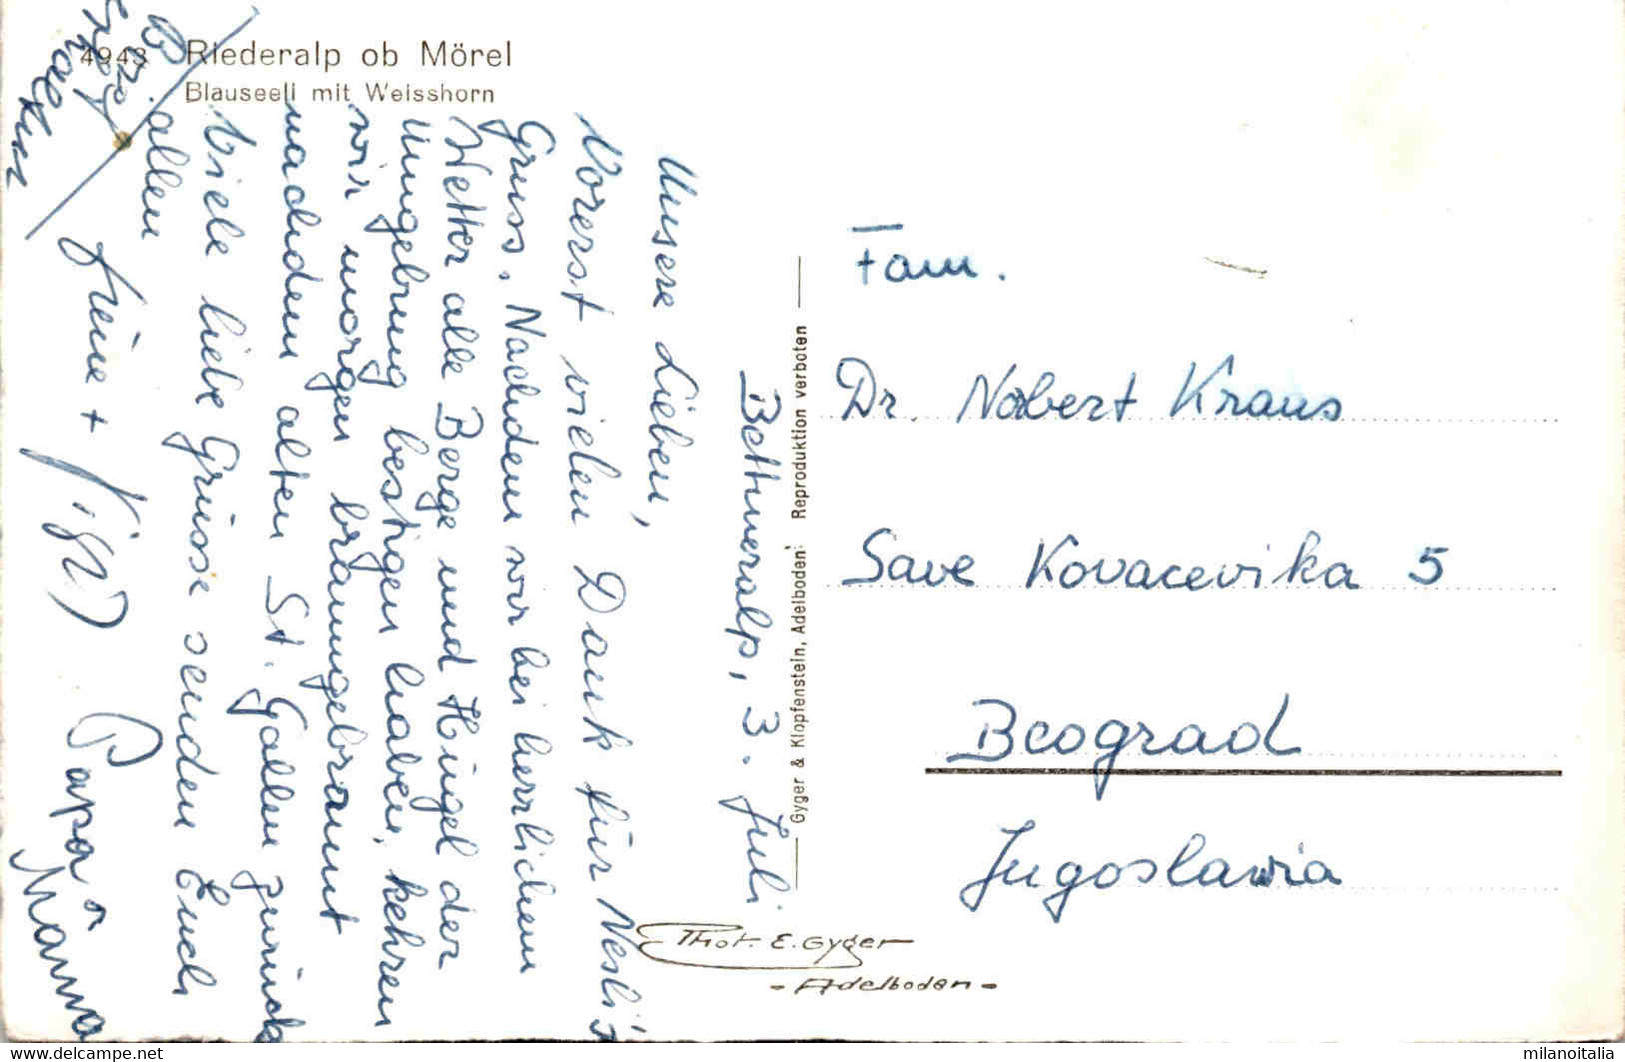 4943 Riederalp ob Mörel
Blauseeli mit Weisshorn
Bettmeralp, 3. Juli
Unsere Lieben,
Vorerst vielen Dank für Nesli's
Gruss. Nachdem wir bei herrlichem
Wetter alle Berge und Hügel der
Umgebung bestigen haben, kehren
wir morgen braungebrannt
nach dem alten St. Gallen zurück
Viele liebe Grüsse senden Euch
allen
Papa & Mama
Gyger & Klopfenstein, Adelboden: Reproduktion verboten
Fam.
Dr. Norbert Kraus
Save Kovacevika 5
Beograd
Jugoslawia
Phot. E. Gyger
- Adelboden -
www.delcampe.net
milanoitalia